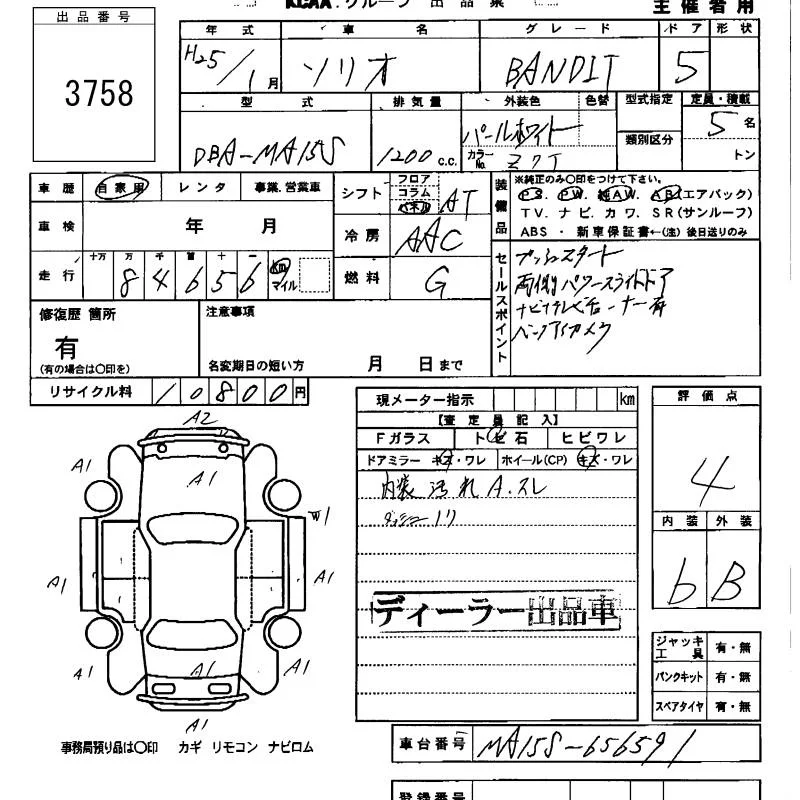 KCAA・グループ 出品票 主催者用
出品番号
3758
年式 車名 グレード ドア 形状
H25/1月 ソリオ BANDIT 5
型式 排気量 外装色 色替 型式指定 定員・積載
DBA-MA15S 1200 c.c. パールホワイト カラーNo. Z7T 類別区分 5名
トン
車歴 自家用 レンタ 事業.営業車
シフト フロア コラム パネル AT
装備品 ※純正のみ〇印をつけて下さい。
PS. PW. 純AW. AB(エアバック)
TV. ナビ. カワ. SR(サンルーフ)
ABS ・ 新車保証書←(注) 後日送りのみ
車検 年 月
冷房 AAC
走行 十万 万 千 百 十 一 84656 km マイル
燃料 G
セールスポイント
プッシュスタート
両側パワースライドドア
ナビ
バックカメラ
修復歴 箇所
有
(有の場合は〇印を)
注意事項
名変期日の短い方 月 日まで
リサイクル料 10800円
現メーター指示 km
【査定員記入】
Fガラス トビ石 ヒビワレ
ドアミラー キズ・ワレ ホイール(CP) キズ・ワレ
内装 汚れ A.スレ
ディーラー出品車
評価点
4
内装 外装
b B
A2
A1 A1 A1
W1
A1 A1
A1 A1 A1
A1
ジャッキ工具 有・無
パンクキット 有・無
スペアタイヤ 有・無
事務局預り品は〇印 カギ リモコン ナビロム
車台番号 MA15S-656591
登録番号